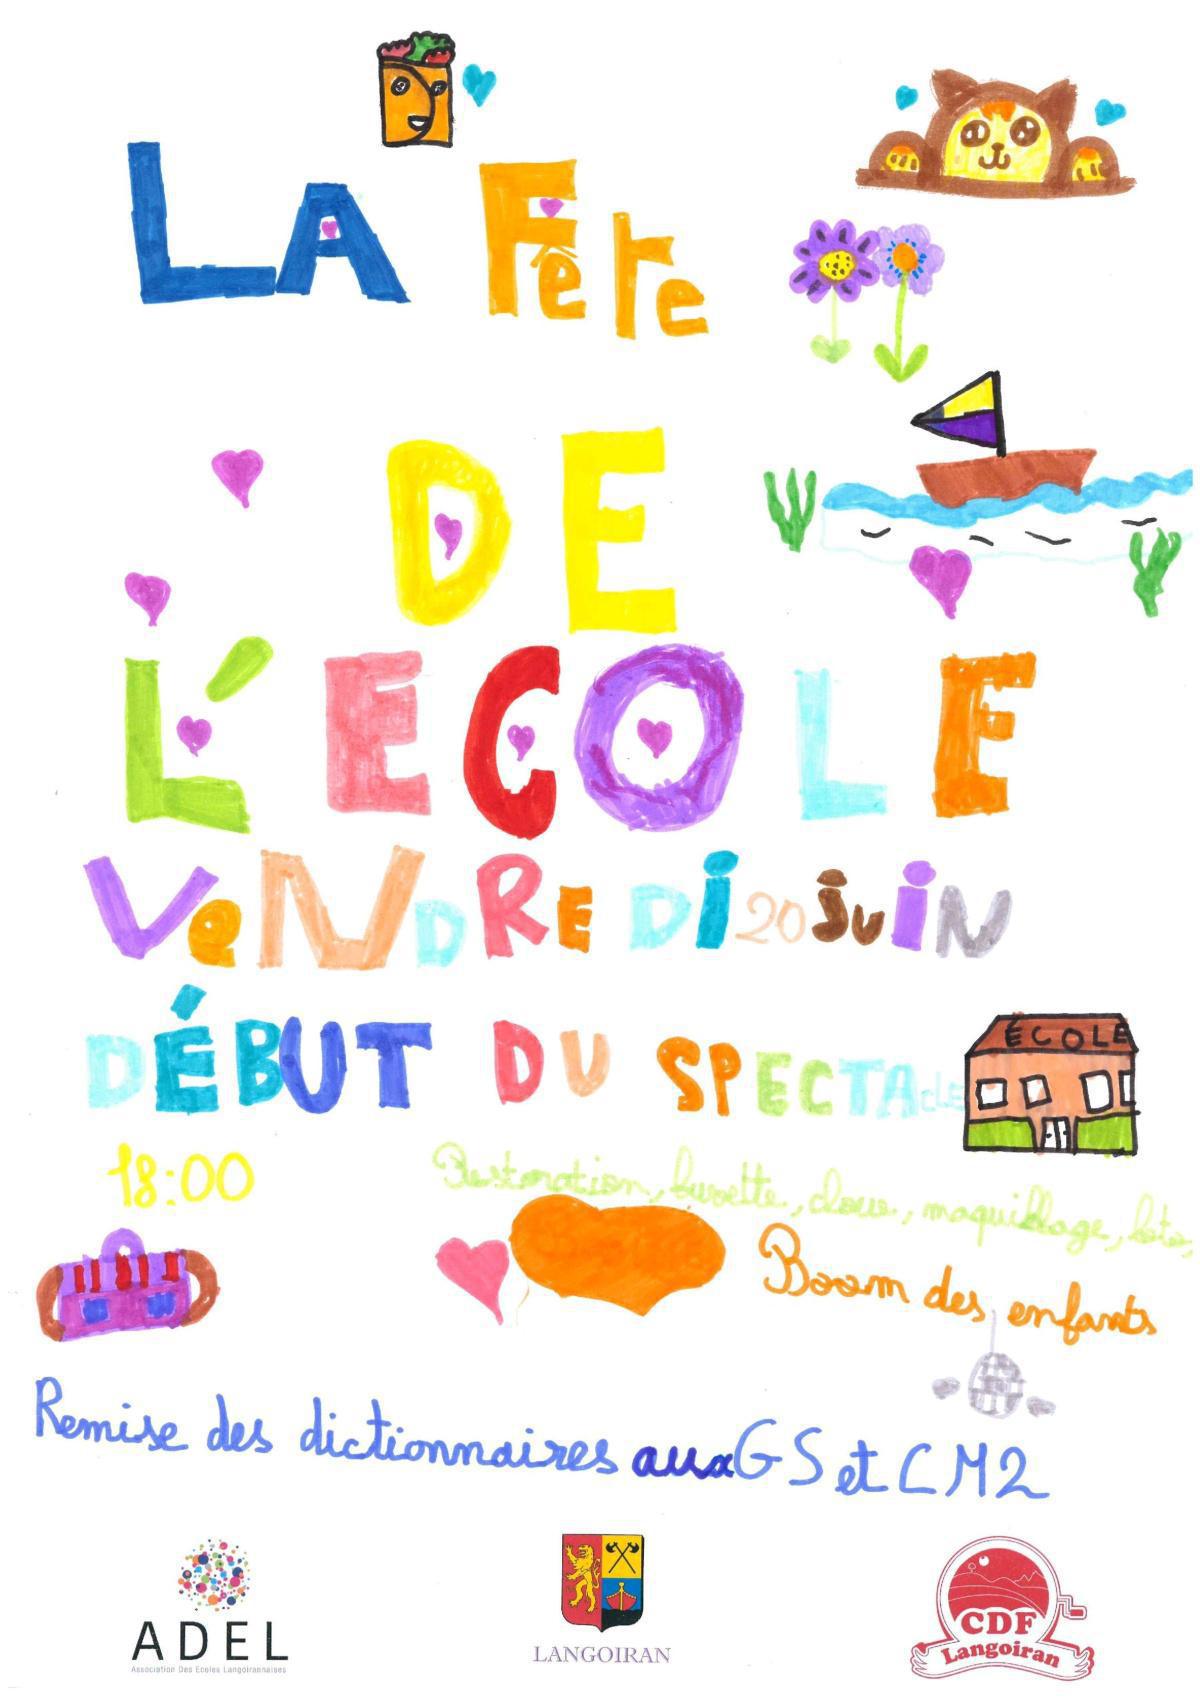 LA Fête
DE
L'ECOLE
VeNDRE Di 20 JuiN
DÉBUT DU SPECTAcLE
ÉCOLE
18:00
Restoration, buvette, clown, maquillage, loto,
Boom des enfants
Remise des dictionnaires aux GS et CM2
ADEL
Association Des Ecoles Langoirannaises
LANGOIRAN
CDF
Langoiran